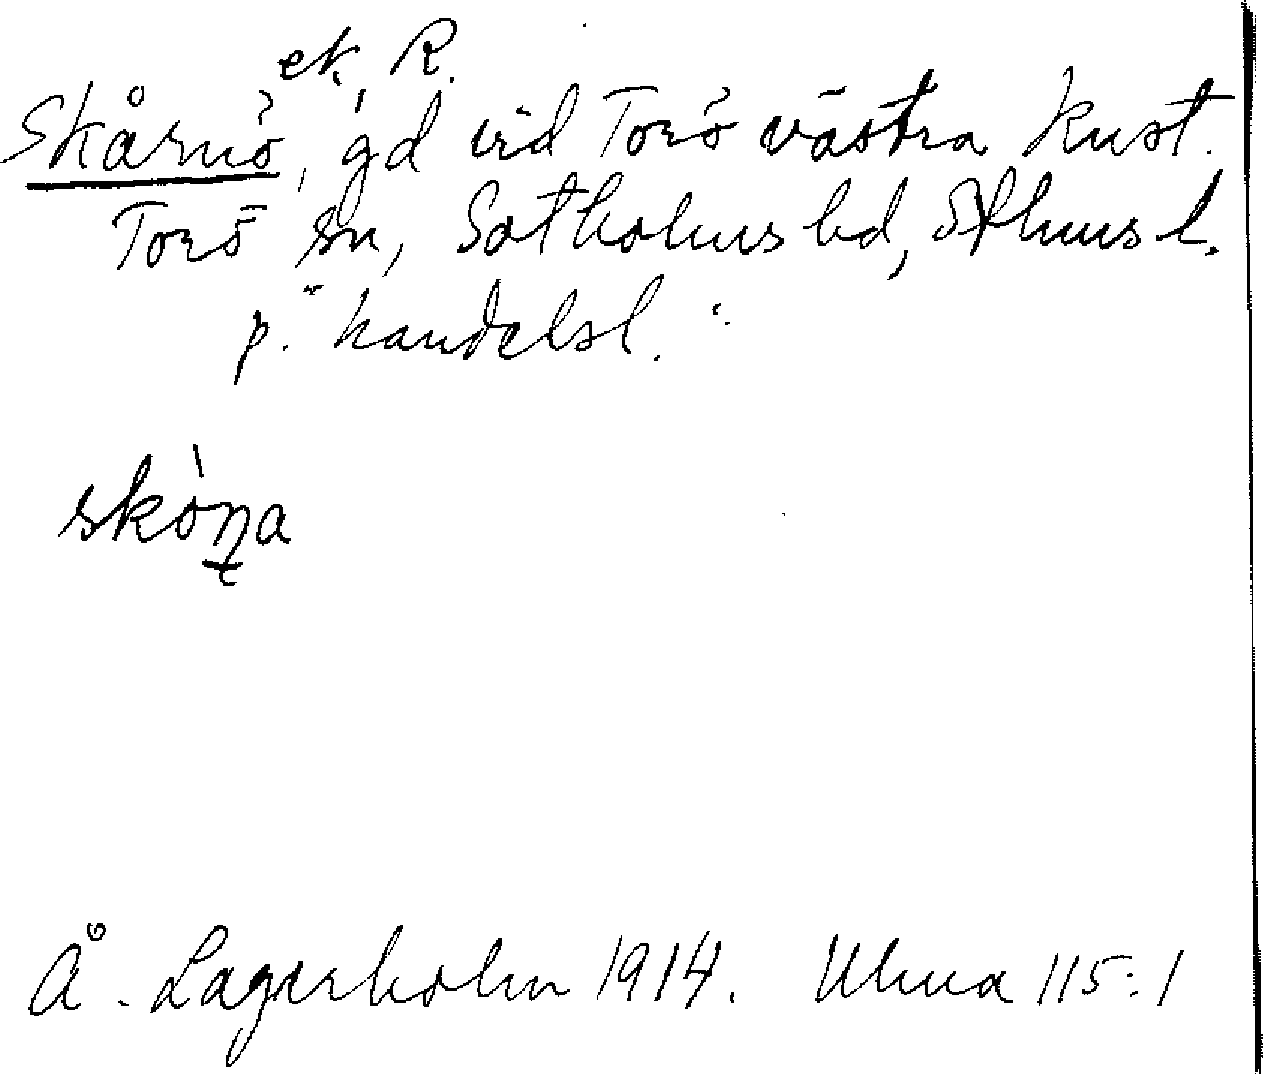 ek, R.
Skårnö, gd vid Torö västra kust.
Torö sn, Sotholms hd, Sthms l.
p. "handelsl."
skòṉa
Å. Lagerholm 1914. Ulma 115:1